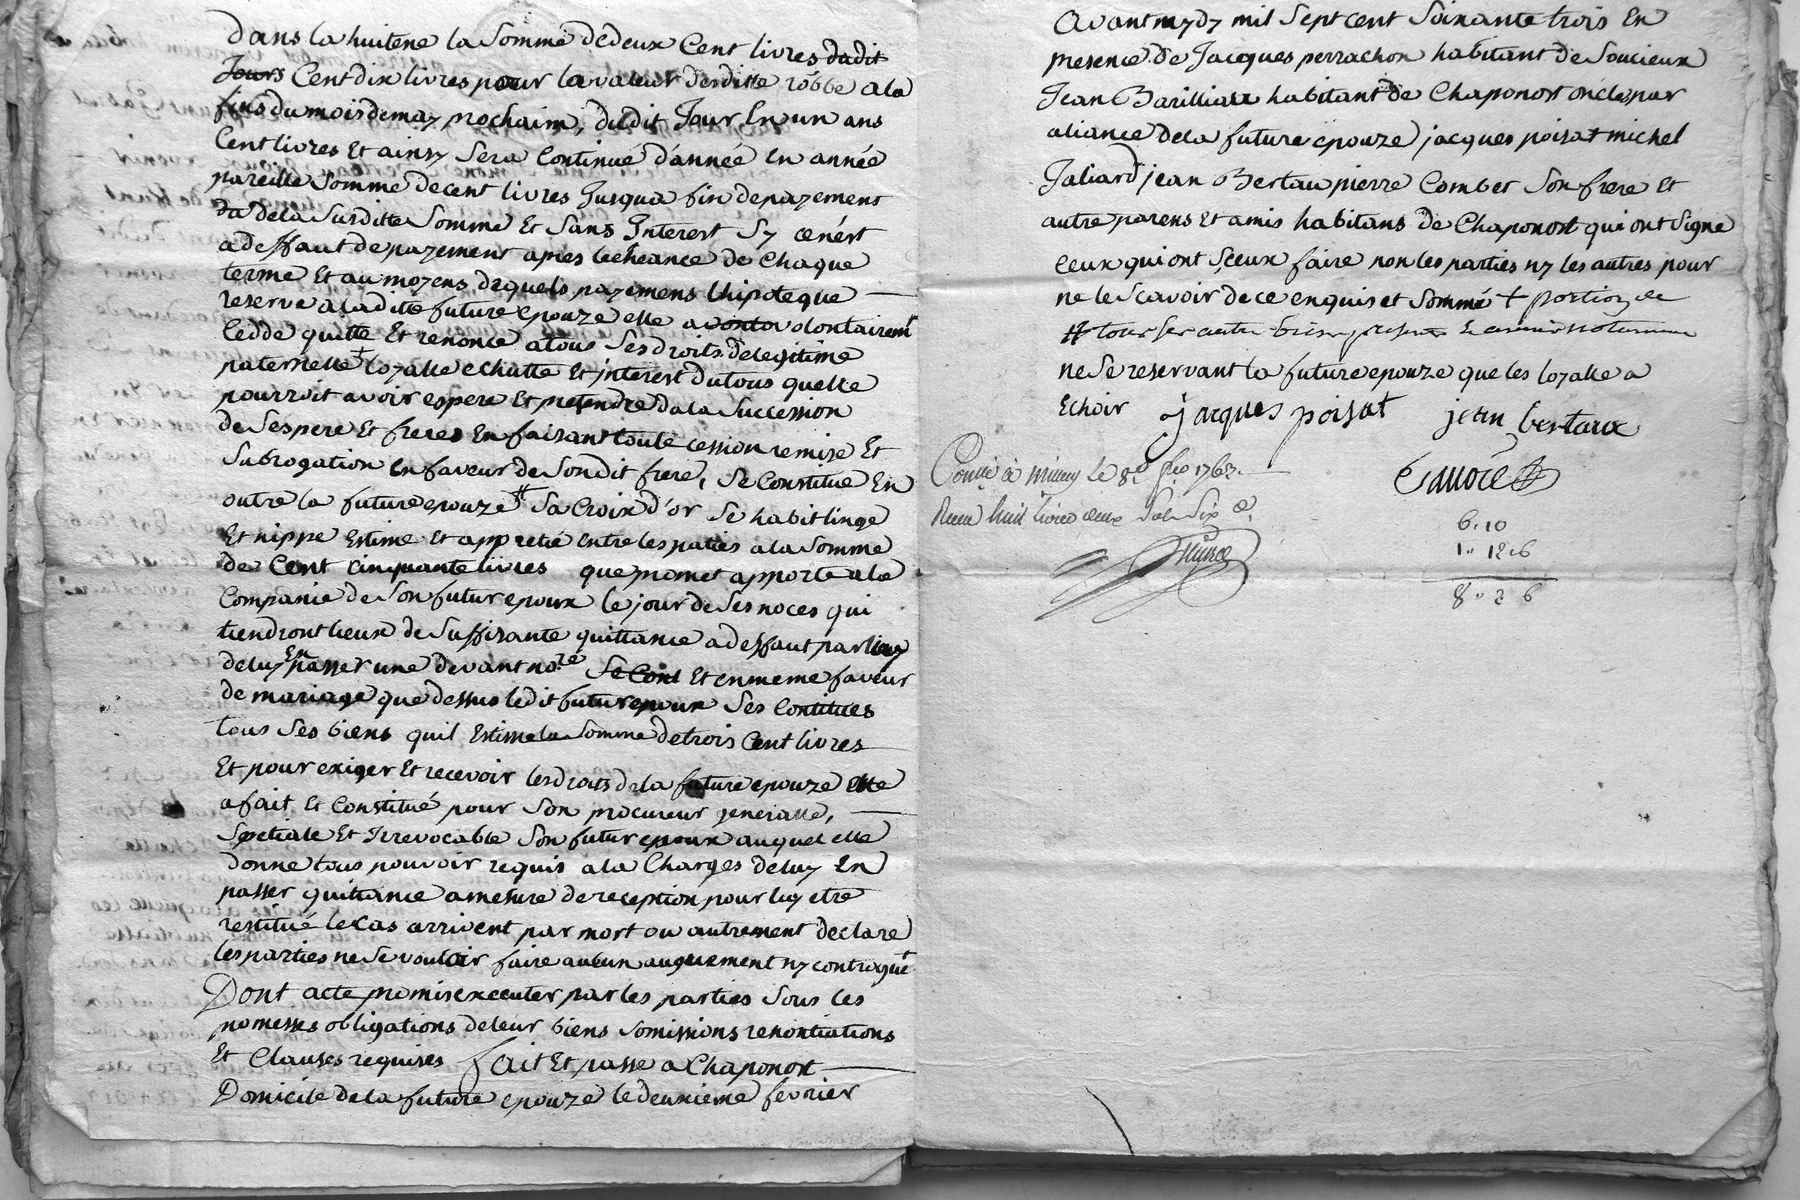 Dans la huitene la Somme de deux Cent livres dudit
Jours Cent dix livres pour la valeur desditte robbe a la
fins du mois de may prochaim, dudit Jour En un ans
Cent livres Et ainsy Sera Continué d'année En année
pareille Somme de cent livres Jusqua fin de payement
da de la Susditte Somme Et Sans Interest Sy ce n'est
a deffaut de payement apres lecheance de Chaque
terme Et au moyens dequels payemens lhipoteque
reserve a la ditte future epouze elle a volontairemt
Cedde quitte Et renonce a tous Ses droits de legitime
paternelle + loyalle echutte Et jnterest du tous quelle
pourroit avoir espere Et pretendre da la Succession
de Ses pere Et freres En faisant toute cession remise Et
Subrogation En faveur de Son dit frere, Se Constitue En
outre la future epouze # Sa Croix d'or Se habit linge
Et nippe Estime Et appretié Entre les paties a la Somme
de Cent cinquante livres que promet apporte a la
Companie de Son futur epoux le jour de Ses noces qui
tiendront lieux de Suffisante quittance a deffaut par luy
de luy En passer une devant nore Se Cont Et en meme faveur
de mariage que dessus le dit futur epoux Ses Contitues
tous Ses biens quil Estime la Somme de trois Cent livres
Et pour exiger Et recevoir les droits de la future epouze Elle
a fait Et Constitué pour Son procureur generalle,
Spetiale Et Irrevocable Son futur epoux auquel elle
donne tous pouvoir requis a la Charges de luy En
passer quittance a mesure de reception pour luy etre
restitué le Cas arrivent par mort ou autrement declare
les parties ne Se vouloir faire aucun auguement ny controgut
Dont acte promis executer par les parties Sous les
promesses obligations de leur biens Somissions renontiations
Et Clauses requises fait Et passe a Chaponost
Domicile de la future epouze le deuxieme fevrier
avant mydy mil Sept cent Soixante trois En
presence de Jacques perrachon habitant de Soucieux
Jean Barilliat habitant de Chaponost oncle par
aliance de la future epouze jacques poisat michel
Jaliard jean Bertau pierre Combet Son frere Et
autre parens Et amis habitans de Chaponost qui ont Signe
Ceux qui ont Sceux faire non les parties ny les autres pour
ne le Scavoir de ce enquis et Sommé + portion de
# tous ses autre biens present et avenir notamme
ne Se reservant la future epouze que les loyalle a
Echoir jacques poisat jean bertaux
Conllé à millery Le 8e fev 1763.
Receu huit livres deux Sols Six d.
6.10
1.. 12.6
8.. 2 6